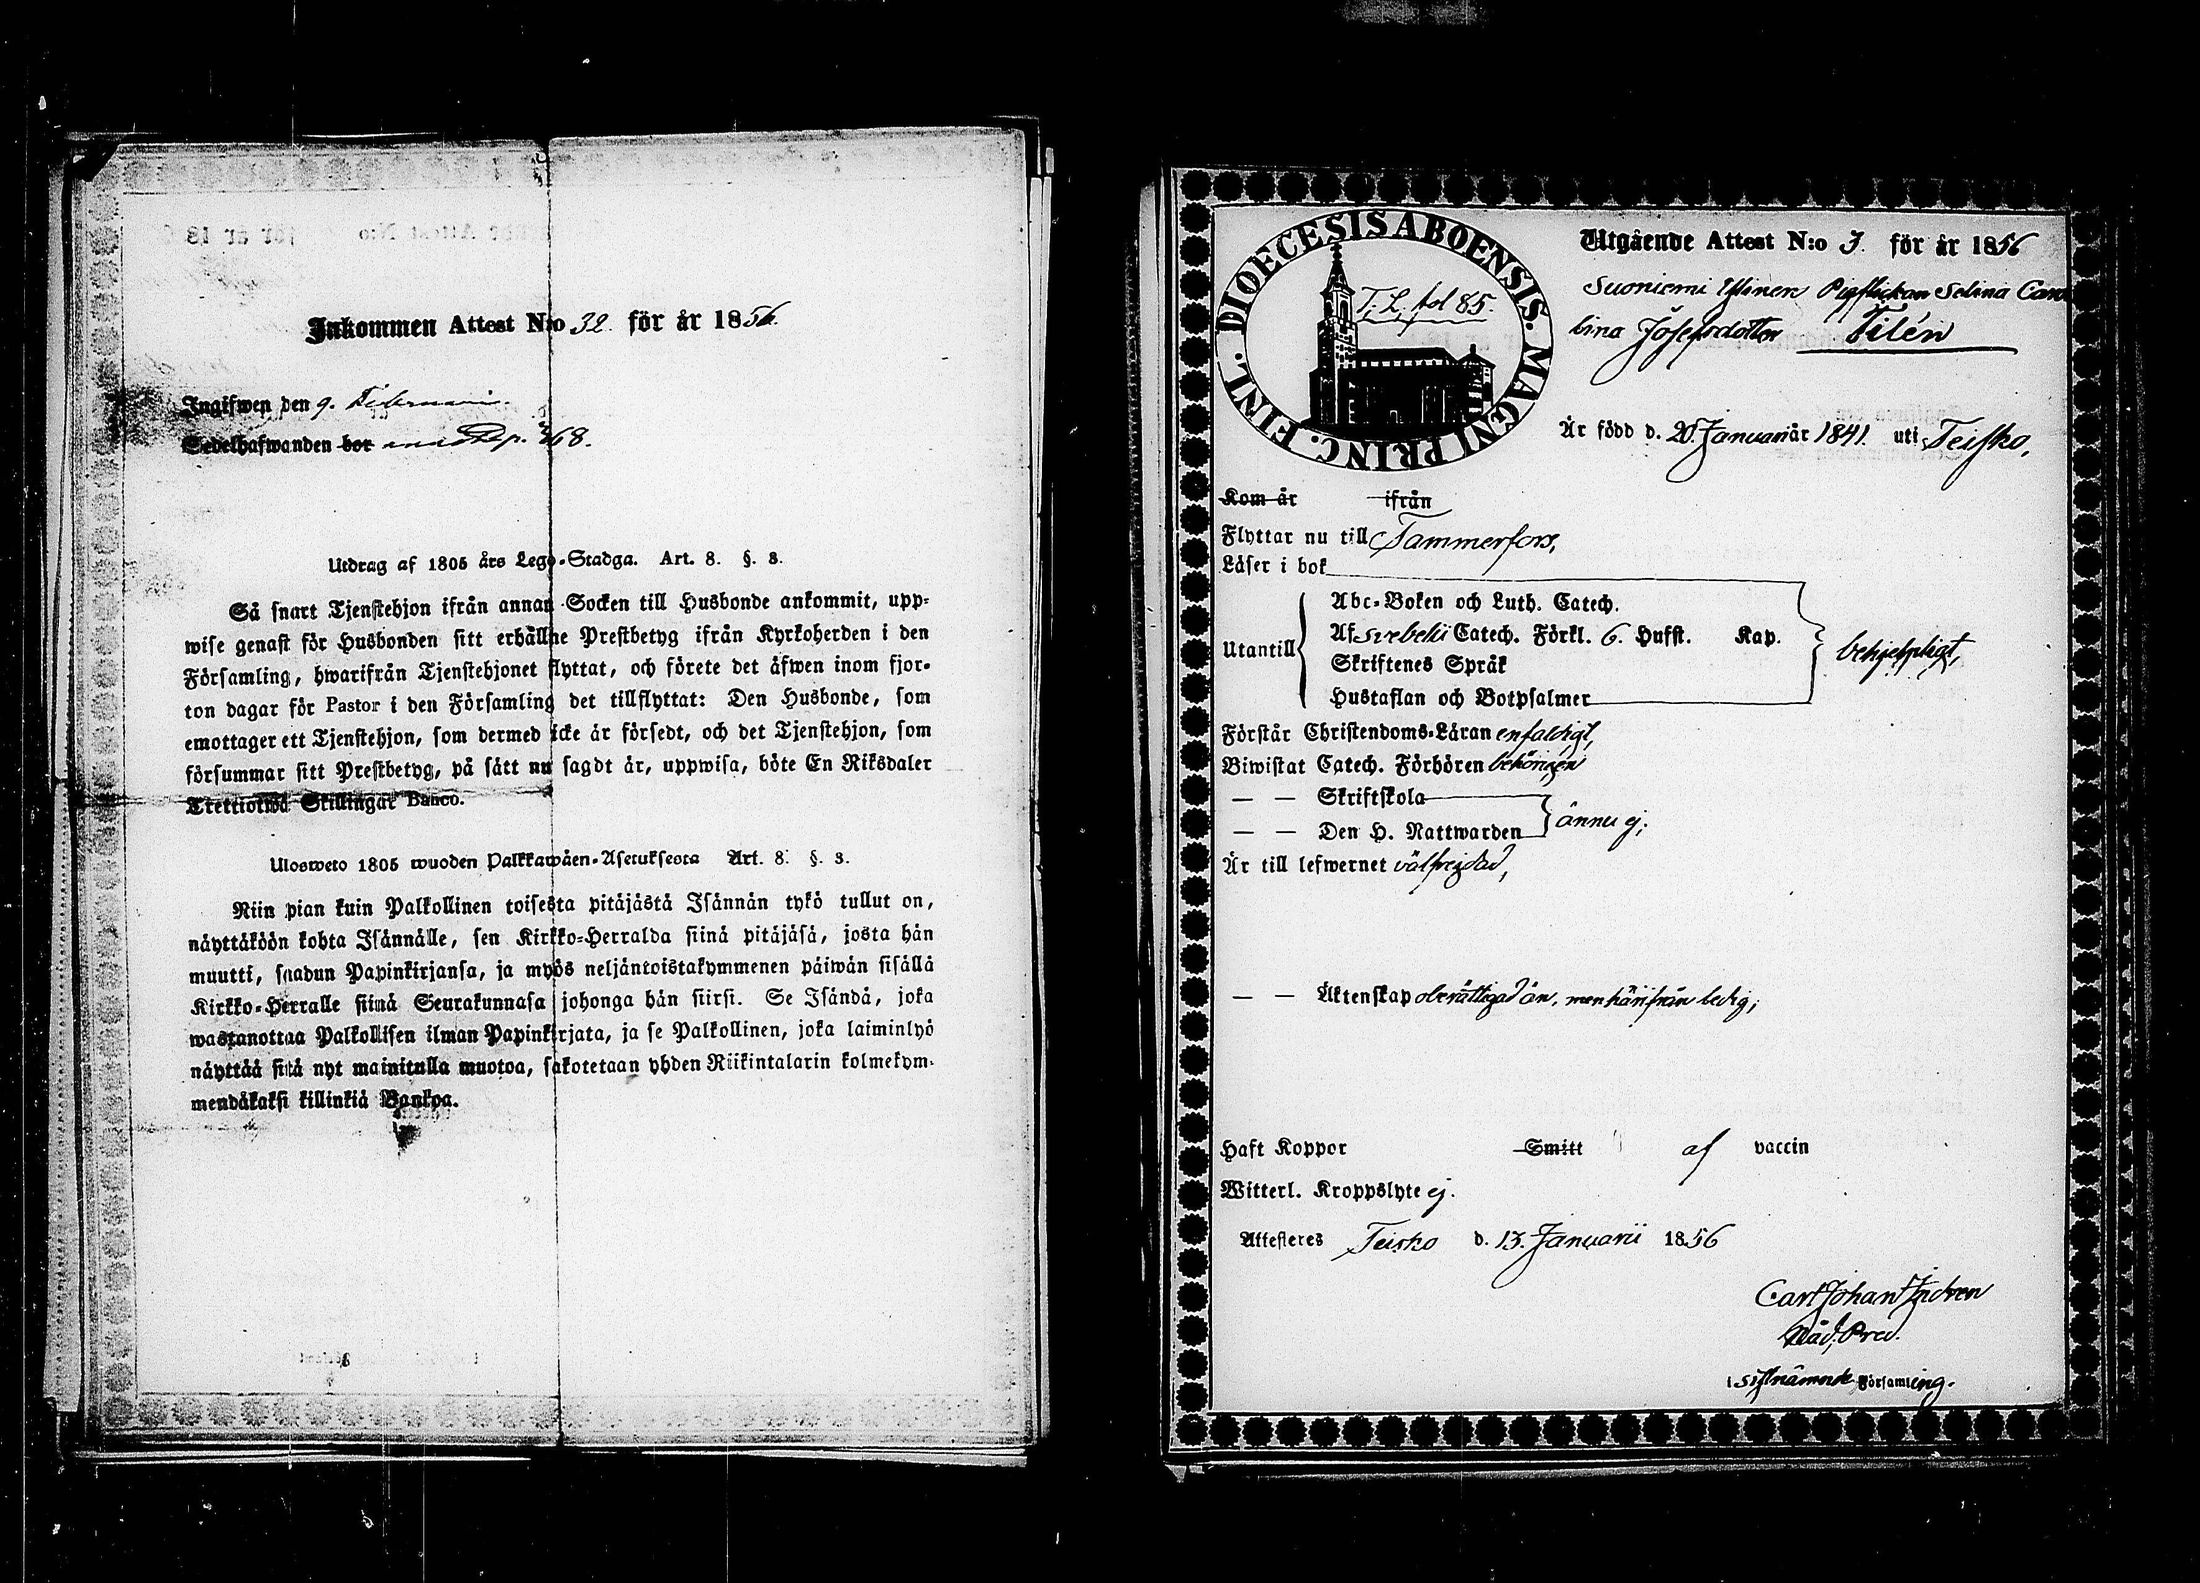 Inkommen Attest N:o 32. för år 1856.
Ingifwen den 9. Februarii.
Sedelhafwanden bor
Utdrag af 1805 års Lego-Stadga. Art. 8. §. 3.
Så snart Tjenstehjon ifrån annan Socken till Husbonde ankommit, upp-
wise genast för Husbonden sitt erhållne Prestbetyg ifrån Kyrkoherden i den
Församling, hwarifrån Tjenstehjonet flyttat, och förete det äfwen inom fjor-
ton dagar för Pastor i den Församling det tillflyttat: Den Husbonde, som
emottager ett Tjenstehjon, som dermed icke är försedt, och det Tjenstehjon, som
försummar sitt Prestbetyg, på sätt nu sagdt är, uppwisa, böte En Riksdaler
Trettiotwå Skillingar Banco.
Ulosweto 1805 wuoden Palkkawäen-Asetuksesta Art. 8. §. 3.
Niin pian kuin Palkollinen toisesta pitäjästä Isännän tykö tullut on,
näyttäköön kohta Isännälle, sen Kirkko-Herralda siinä pitäjäsä, josta hän
muutti, saadun Papinkirjansa, ja myös neljäntoistakymmenen päiwän sisällä
Kirkko-Herralle siinä Seurakunnasa johonga hän siirsi. Se Isändä, joka
wastanottaa Palkollisen ilman Papinkirjata, ja se Palkollinen, joka laiminlyö
näyttää sitä nyt mainitulla muotoa, sakotetaan yhden Riikintalarin kolmekym-
mendäkaksi killinkiä Bankoa.
DIOECESIS ABOENSIS. MAGNI PRINC. FINL.
T. L. fol 85.
Utgående Attest N:o 3. för år 1856
Suoniemi Ylinen Pigflickan Selina Caro
lina Josefsdotter Tilén
Är född d. 20. Januarii år 1841. uti Teisko,
Kom år ifrån
Flyttar nu till Tammerfors,
Läser i bok
Abc-Boken och Luth. Catech.
Utantill
Af Svebelii Catech. Förkl. 6. Hufst. Kap.
Skriftenes Språk
Hustaflan och Botpsalmer
behjelpligt,
Förstår Christendoms-Läran enfaldigt,
Biwistat Catech. Förhören behörigen
— — Skriftskola
— — Den H. Nattwarden
ännu ej;
Är till lefwernet välfrejdad,
— — Äktenskap oberättigad än, men härifrån ledig;
Haft Koppor Smitt af vaccin
Witterl. Kroppslyte ej.
Attesteres Teisko d. 13. Januarii 1856
Carl Johan Indren
Nåd. Pred.
i sistnämnde Församling.